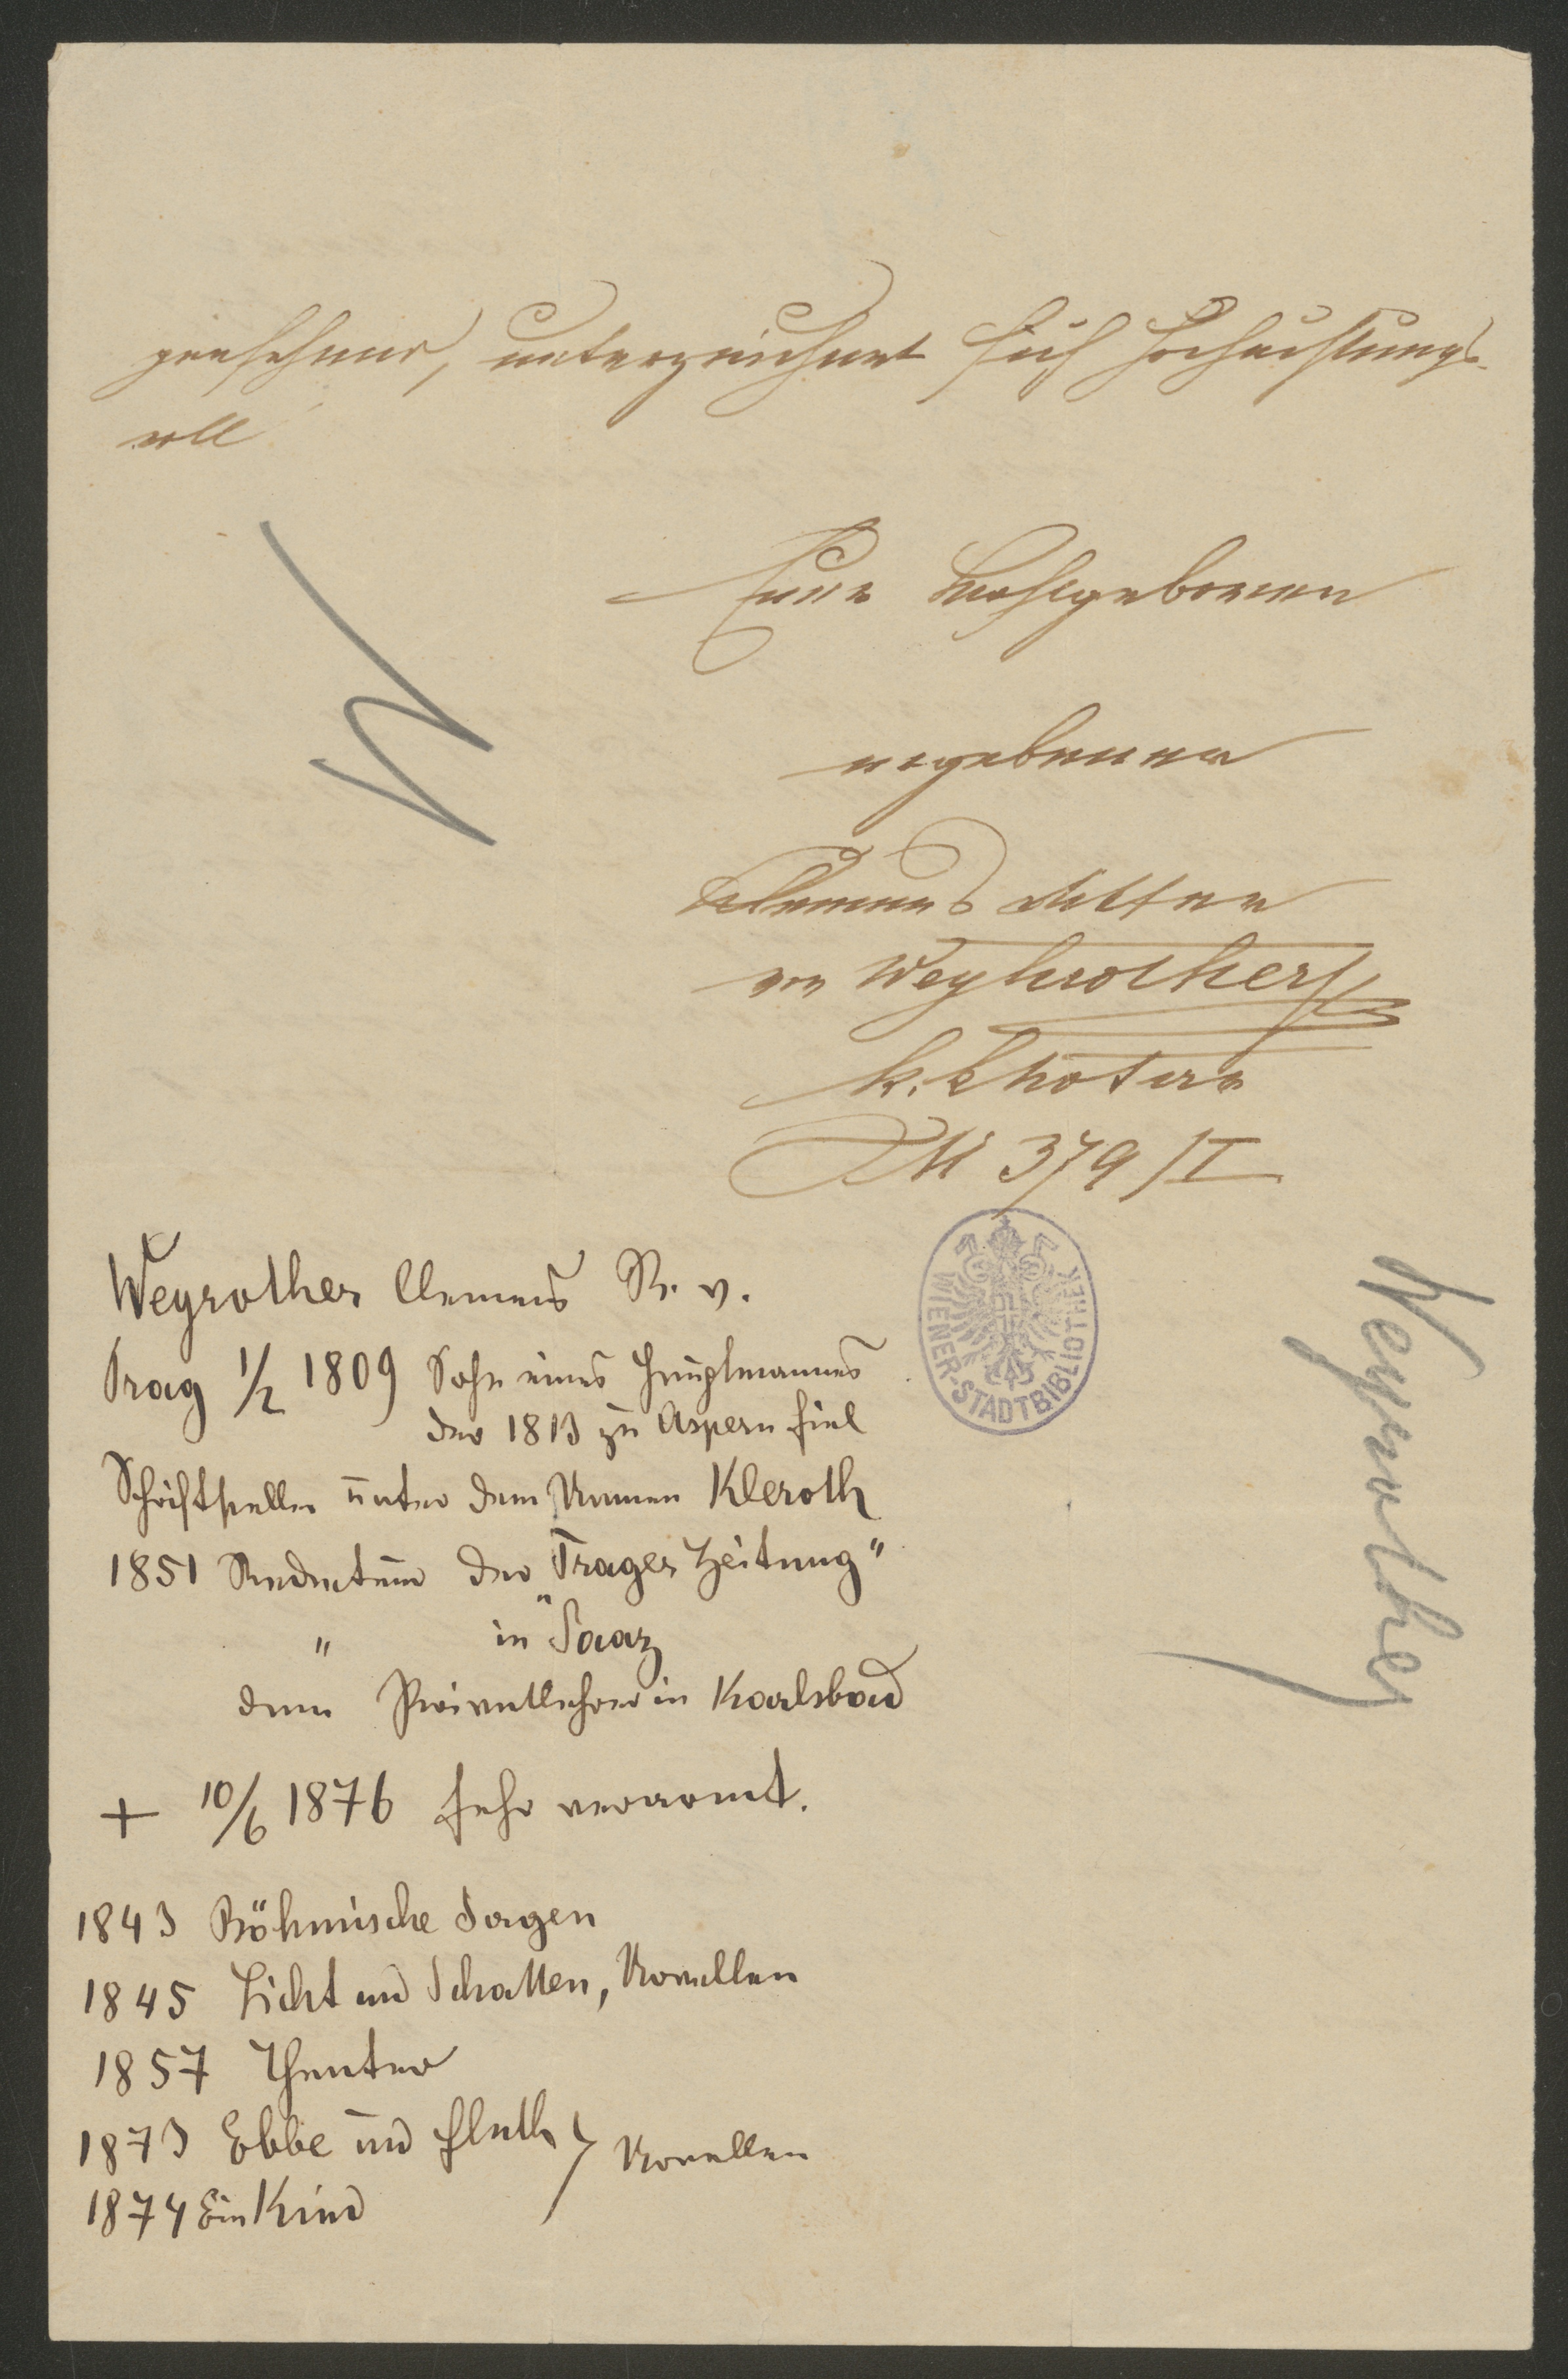 gensehend, unterzeichnet sich hochachtungs-
voll
Euer Wohlgeboren
ergebener
Klemens Ritter
von Weyhrother
M 379/I
Weyrother Clemens R. v.
Prag 1/2 1809 Sohn eines Hauptmannes
der 1813 zu Aspern fiel
Schriftsteller unter dem Namen Kleroth
1851 Redacteur der "Prager Zeitung"
" in Saaz
dann Privatlehrer in Karlsbad
+ 10/6 1876 sehr verarmt.
1843 Böhmische Sagen
1845 Licht und Schatten, Novellen
1857 Theater
1873 Ebbe und Fluth } Novellen
1874 Ein Kind
WIENER-STADTBIBLIOTHEK
Weyrother